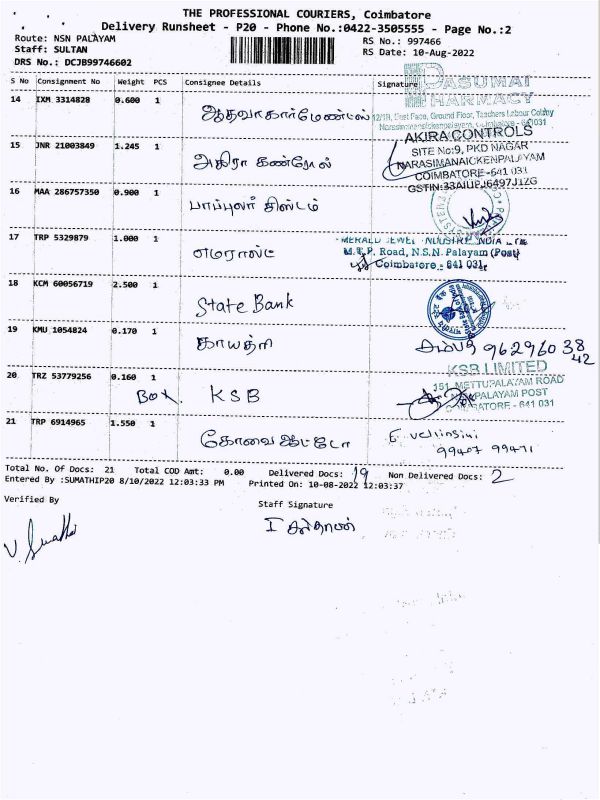 THE PROFESSIONAL COURIERS, Coimbatore
Delivery Runsheet - P20 - Phone No.:0422-3505555 - Page No.:2
Route: NSN PALAYAM
RS No.: 997466
Staff: SULTAN
RS Date: 10-Aug-2022
DRS No.: DCJB99746602
S No Consignment No Weight PCS Consignee Details Signature
PASUMAI
PHARMACY
14 IXM 3314828 0.600 1 ஆதவா கார்மேண்ட்ஸ்
East Face, Ground Floor, Teachers Colony
AKIRA CONTROLS
15 JNR 21003849 1.245 1 அகிரா கண்ரோல்
SITE No:9, PKD NAGAR
NARASIMANAICKENPALAYAM
COIMBATORE-641 031
16 MAA 286757350 0.900 1 பாப்புலர் சிஸ்டம்
17 TRP 5329879 1.000 1 எமரால்ட்
M.T.P. Road, N.S.N. Palayam (Post)
Coimbatore - 641 031.
18 KCM 60056719 2.500 1 State Bank
19 KMU 1054824 0.170 1 காயத்ரி
9629603842
KSB LIMITED
20 TRZ 53779256 0.160 1 Box KSB
151, METTUPALAYAM ROAD
PALAYAM POST
641 031
21 TRP 6914965 1.550 1 கோவை ஆட்டோ
99407 99471
Total No. Of Docs: 21 Total COD Amt: 0.00 Delivered Docs: 19 Non Delivered Docs: 2
Entered By :SUMATHIP20 8/10/2022 12:03:33 PM Printed On: 10-08-2022 12:03:37
Verified By
Staff Signature